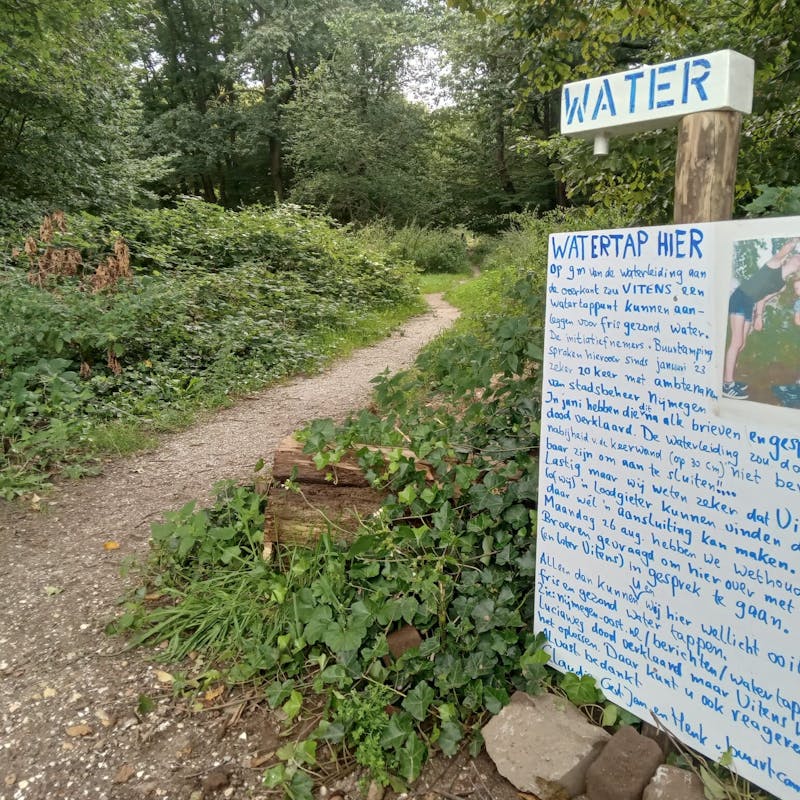 WATER
WATERTAP HIER
op 9m van de waterleiding aan
de overkant zou VITENS een
watertappunt kunnen aan-
leggen voor fris gezond water.
De initiatiefnemers. Buurtcamping
spraken hierover sinds januari 23
zeker 20 keer met ambtenaren
van stadsbeheer Nijmegen.
In juni hebben die dit na alle brieven en
dood verklaard. De waterleiding zou
nabijheid v.de keerwand (op 30 cm) niet
baar zijn om aan te sluiten!!...
Lastig maar wij weten zeker dat
(of wij) 'n loodgieter kunnen vinden
daar wèl 'n aansluiting kan maken.
Maandag 26 aug. hebben we
Broeren gevraagd om hier over met
(en later Vitens) in gesprek te gaan.
Alleen dan kunnen u en wij hier wellicht ooit
fris en gezond water tappen.
Zie: nijmegen-oost.nl/berichten/watertap
Luciaweg dood verklaard maar Vitens
het oplossen. Daar kunt u ook
Alvast bedankt
Claudia, Jan en Henk